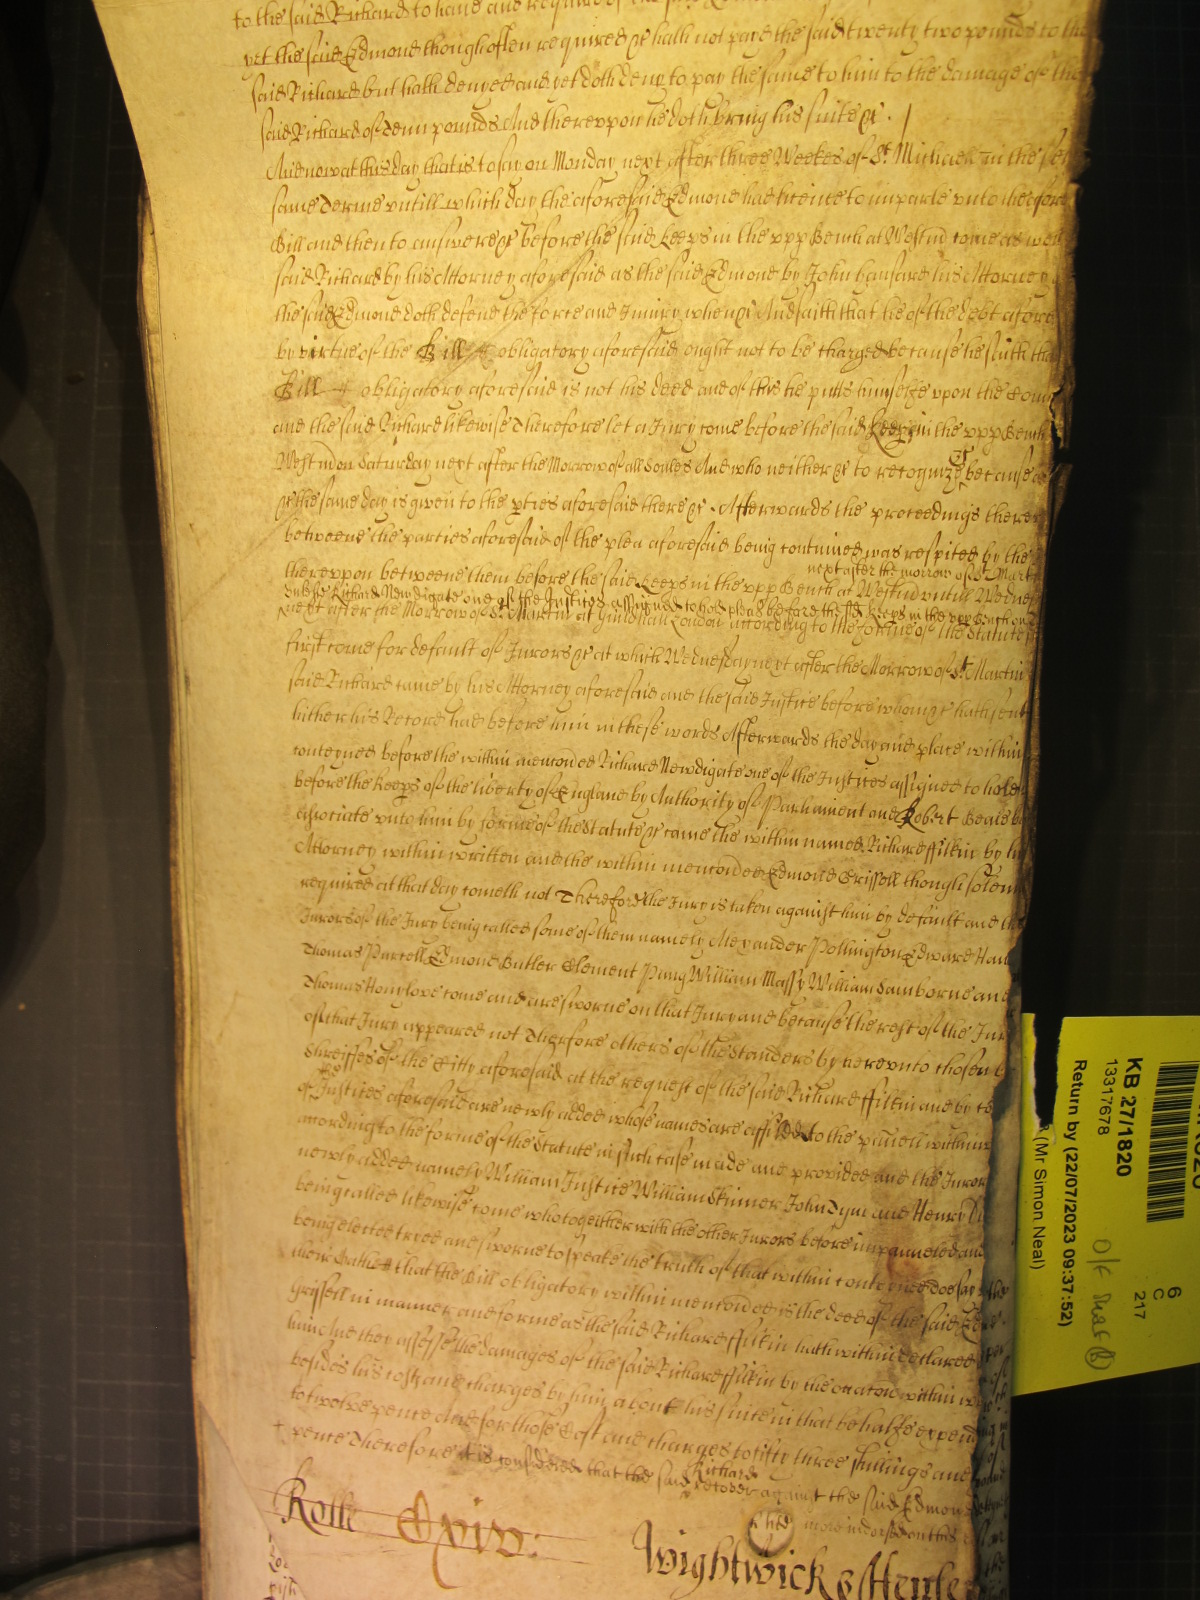 to the said Richard to have and require of the
yet the said Edmond though often required &c hath not paid the said twenty two pounds to the
said Richard but hath denyed and yet doth deny to pay the same to him to the damage of the
said Richard of tenn pounds And thereupon he doth bring his suite &c.
And now at this day that is to say on Monday next after three Weekes of St Michael in the
same Terme untill which day the aforesaid Edmond had licence to imparle unto the afore
Bill and then to answere &c before the said Keeps in the upp Bench at Westm come as well
said Richard by his Attorney aforesaid as the said Edmond by John Hansard his Attorney
the said Edmond doth defend the force and Injury when &c And saith that he of the debt afore
by virtue of the Bill obligatory aforesaid ought not to be charged because he saith tha
Bill obligatory aforesaid is not his deed and of this he putts himselfe upon the Coun
and the said Richard likewise Therefore let a Jury come before the said Keeps in the upp Bench
Westm on Saturday next after the Morrow of all Soules And who neither &c to recognize &c because as
&c the same day is given to the pties aforesaid there &c. Afterwards the proceedings there
betweene the parties aforesaid of the plea aforesaid being continued was respited by the
next after the morrow of St Mart
thereupon betweene them before the said Keeps in the upp Bench at Westm untill Wednes
unless Richard Newdigate one of the Justices assigned to hold pleas before the sd Keeps in the upp Bench on
next after the Morrow of St Martin at Guildhall London according to the forme of the Statute
first come for default of Jurors &c at which Wednesday next after the Morrow of St Martin
said Richard came by his Attorney aforesaid and the said Justice before whom &c hath sent
hither his Record had before him in these words Afterwards the day and place within
conteyned before the within menconed Richard Newdigate one of the Justices assigned to hold
before the Keeps of the liberty of England by Authority of Parliament and Robert
associate unto him by forme of the Statute &c came the within named Richard ffilkin by his
Attorney within written and the within menconed Edmond Grissell though solem
required at that day cometh not Therefore the Jury is taken against him by default and the
Jurors of the Jury being called some of them namely Alexander Pollington Edward Han
Thomas Partell Edmond Butler Clement Pung William Massy William Samborne and
Thomas Honylove come and are sworne on that Jury and because the rest of the Jur
of that Jury appeared not Therefore others of the Standers by hereunto chosen
Shreiffes of the Citty aforesaid at the request of the said Richard ffilkin and by
of Justices aforesaid are newly added whose names are affiled to the pannell within
according to the forme of the Statute in such case made and provided and the Juror
newly added namely William Justice William Skinner John Dym and Henry
being called likewise come who together with the other Jurors before impanneled and
being elected tryed and sworne to speake the truth of that within conteyned doe say
their Oathes that the Bill obligatory within menconed is the deed of the said Ed
Grissell in manner and forme as the said Richard ffilkin hath within declared
him And they assesse the damages of the said Richard ffilkin by the occacon within
besides his costs and charges by him about his suite in that behalfe expend
to twelve pence And for those Cost and charges to fifty three shillings and
pence Therefore it is considered that the said Richard recover against the said Edmond
more indorsed on this
Rolle Cxiv:
Wightwick & Henley
KB 27/1820
13317678
Return by (22/07/2023 09:37:52)
(Mr Simon Neal)
6
C
217